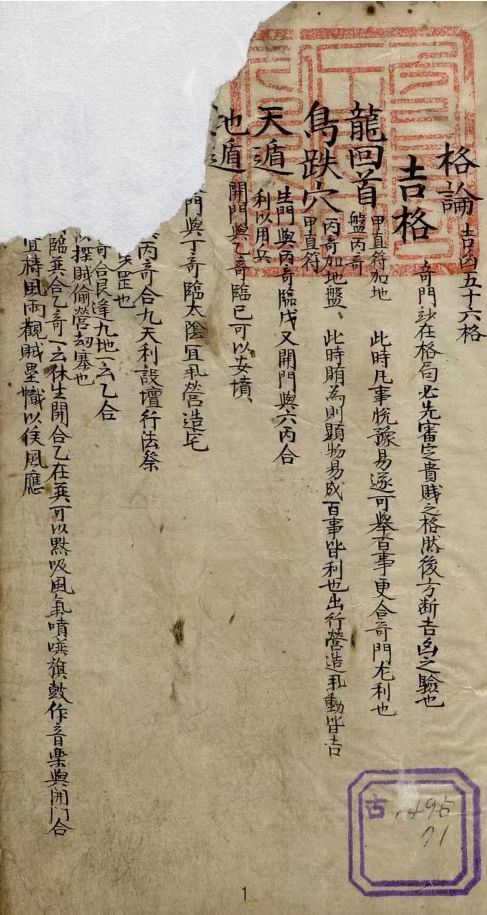 格論吉凶五十六格
吉格 奇門玅在格局必先審定貴賤之格然後方断吉凶之驗也
龍回首 甲直符加地盤丙奇 此時凡事悦豫易遂可舉百事更合奇門尤利也
鳥跌穴 丙奇加地盤甲直符 此時所為則顕易成百事皆利也出行營造動皆吉
天遁 生門與丙奇臨戊又開門與六丙合利以用兵
地遁 開門與乙奇臨己可以安墳
門與丁奇臨太陰宜營造宅
丙奇合九天利設壇行法祭
天罡也
奇合艮逢九地一云乙合
擇賊偷營刼塞也
臨巽合乙奇一云休生開合乙在巽可以黙吸風氣噴噀旗鼓作音樂與開門合
宜禱風雨觀賊壘幟以侯風應
古
495
71
1